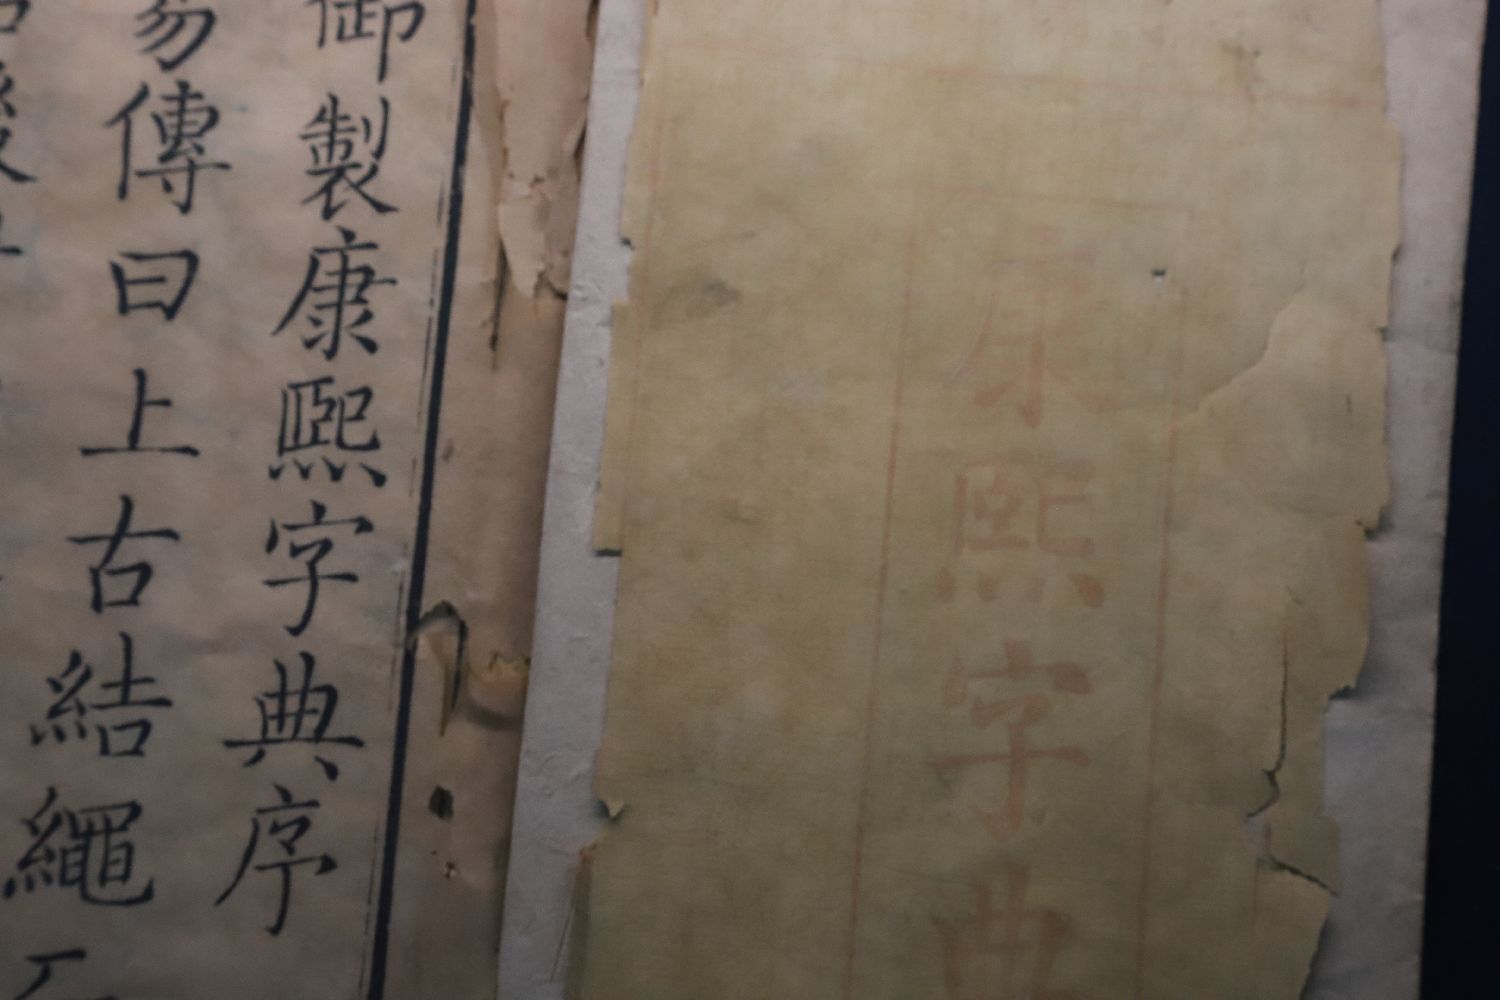 康熙字典
御製康熙字典序
易傳曰上古結繩